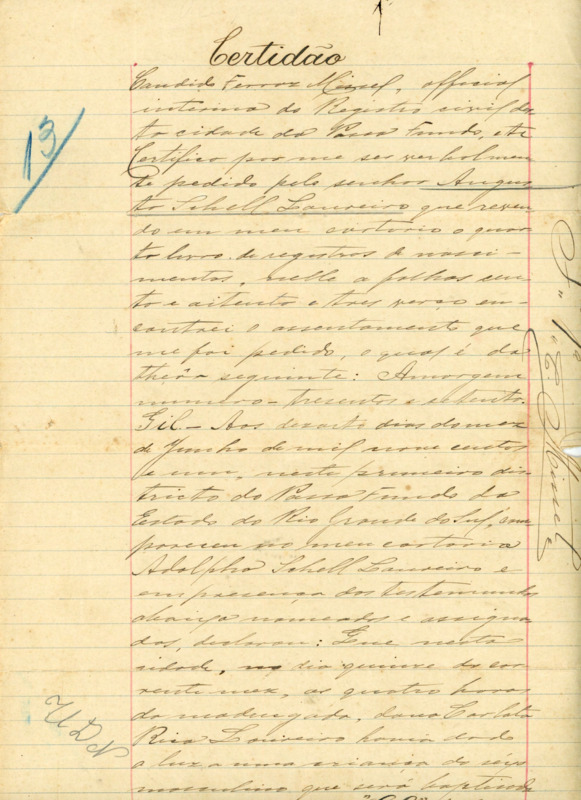 Certidão
13
Candido Ferraz Missel, official
interino do Registro civil des
ta cidade do Passo Fundo, etc
Certifico por me ser verbolmen
te pedido pelo senhor Augus
to Schell Loureiro que reven
do em meu cartorio o quar
to livro de registros de nasci-
mentos, nelle a folhas cen
to e oitenta e tres verço en-
contrei o assentamento que
me foi pedido, o qual é da
theôr seguinte: Amargem
numero - tresentos e setenta.
Gil - Aos dias do mez
de Junho de mil nove centos
e um, neste primeiro dis
tricto do Passo Fundo do
Estado do Rio Grande do Sul, com
pareceu no meu cartorio
Adolpho Schell Loureiro e
em presença das testemunhas
abaixo nomeados e assigna
dos, declarou: Que nesta
cidade, no dia quinze do cor
rente mez, as quatro horas
da madrugada, dona Carlota
Rica Loureiro havia dado
a luz a uma criança do séxo
masculino que será baptisado
Nº 1º
C Missel